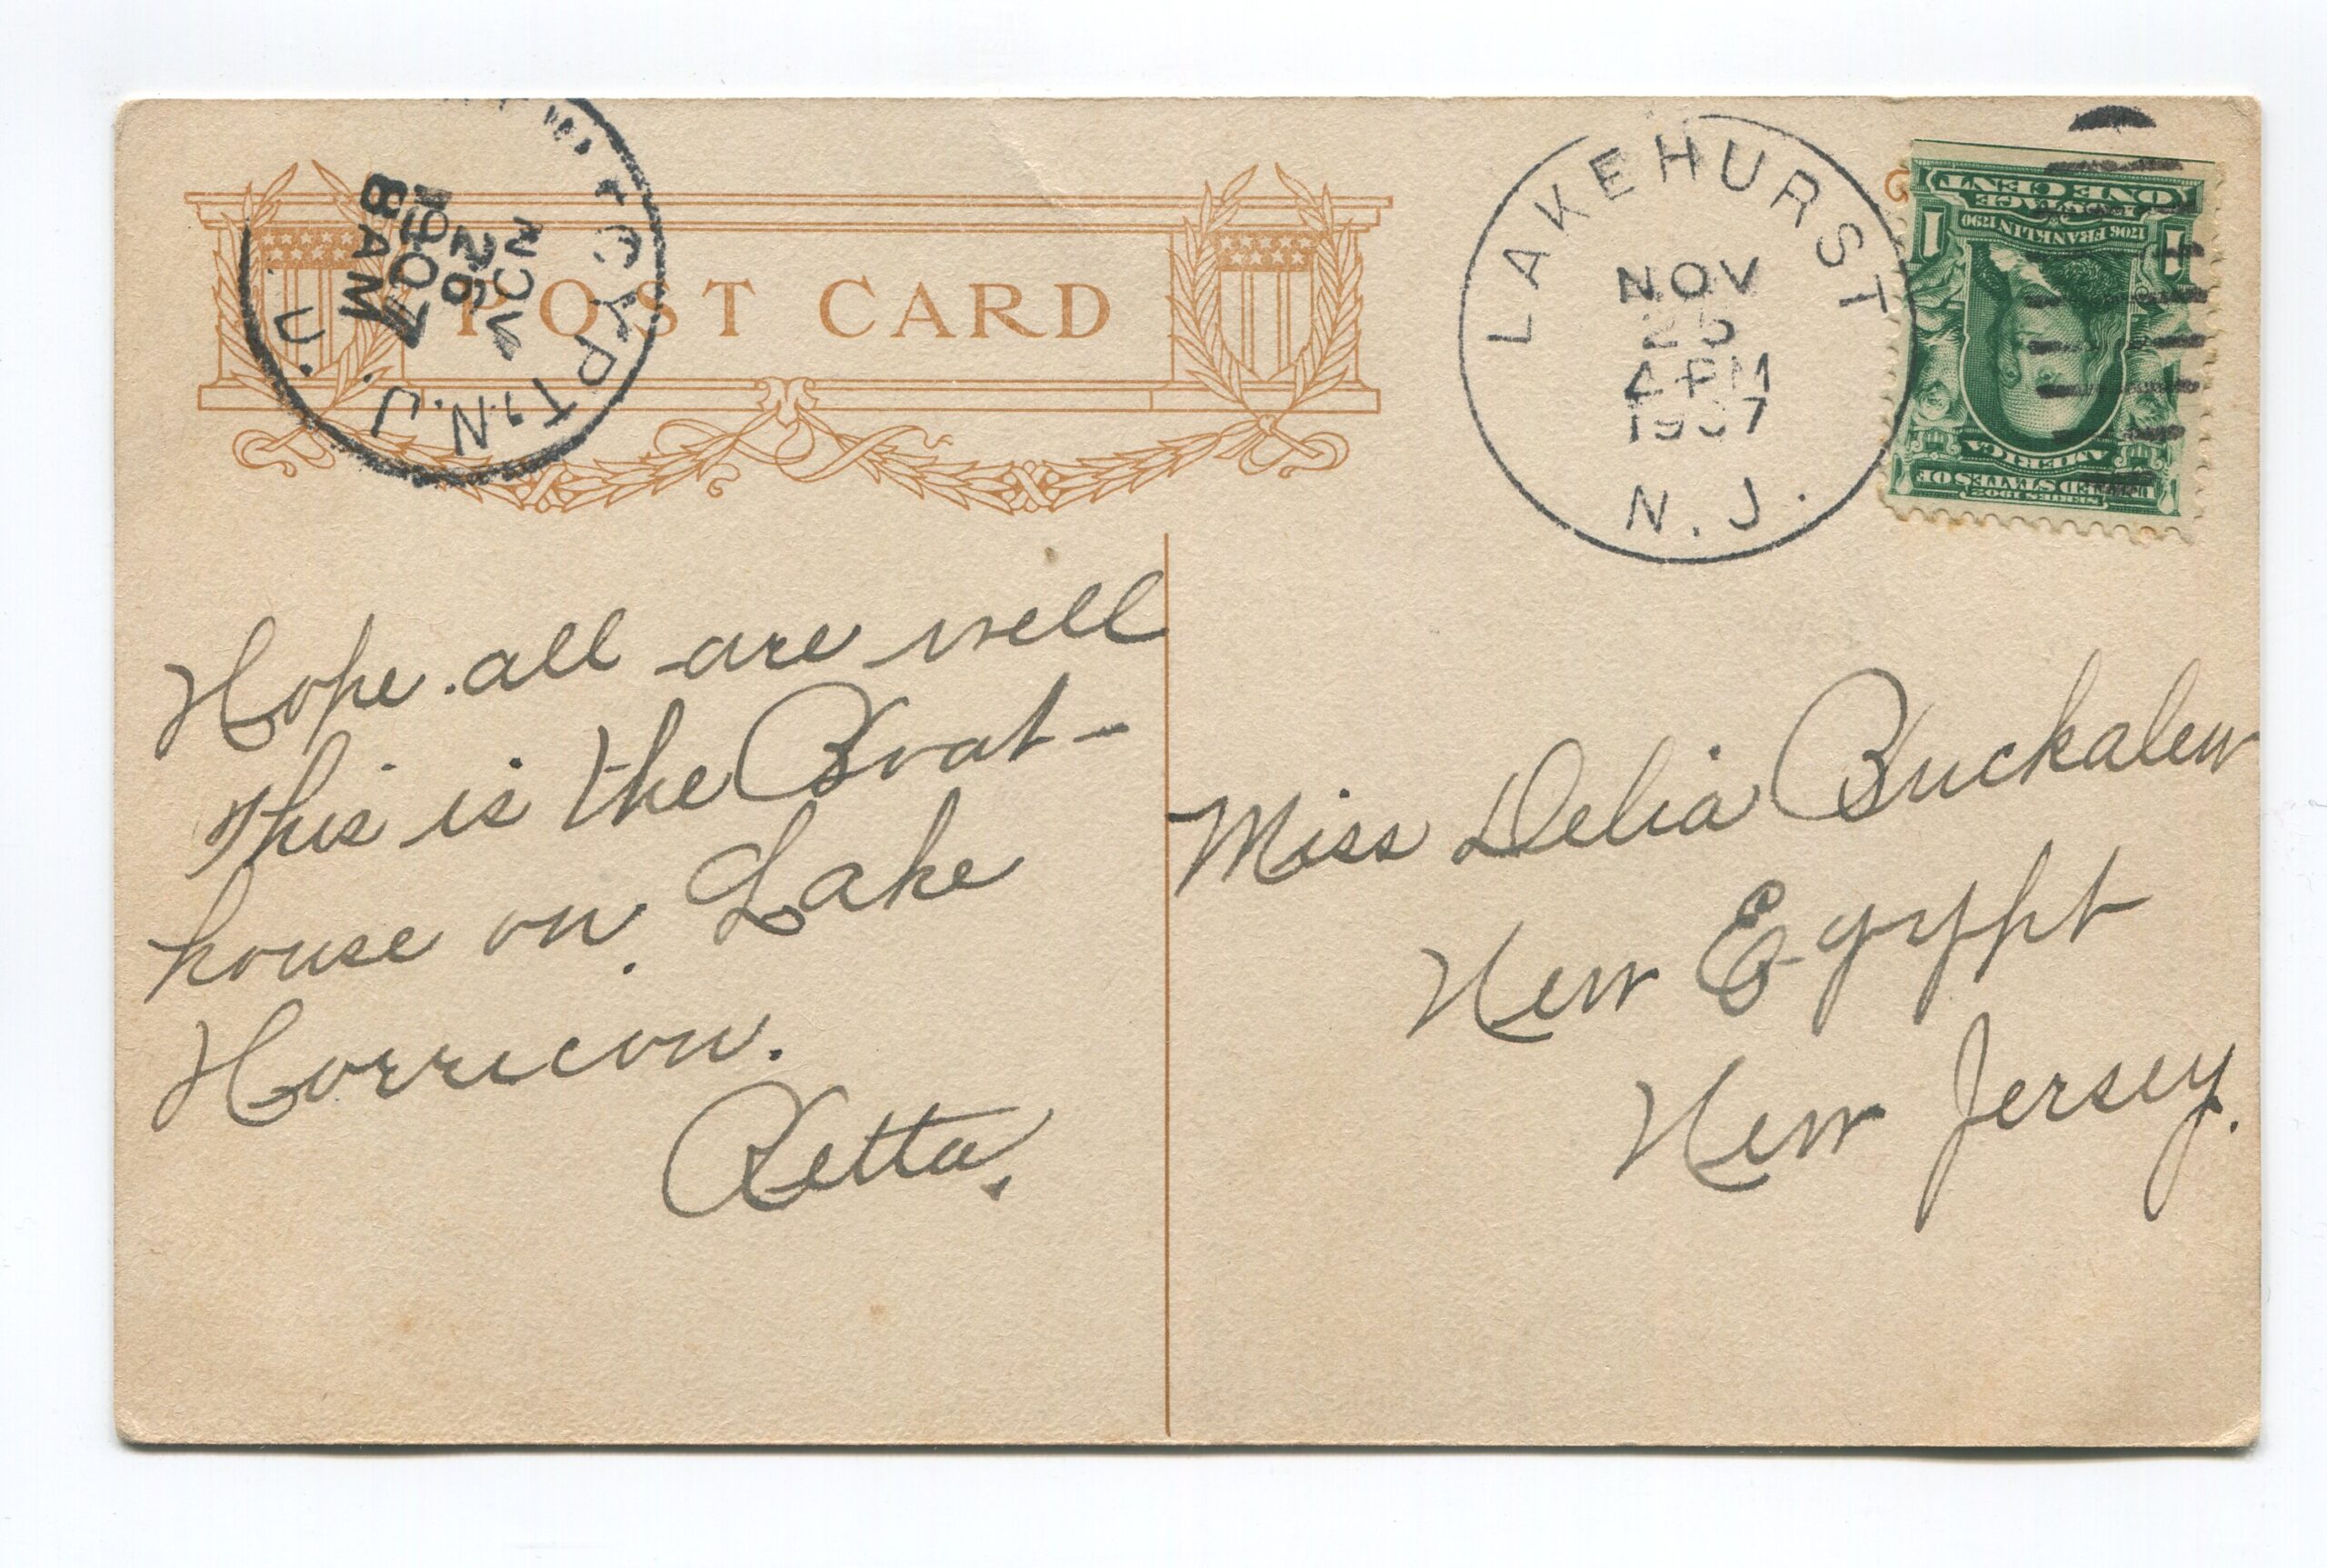 POST CARD
NOV
26
1907
8 AM
N.J.
LAKEHURST
NOV
25
4 PM
1907
N. J.
ONE CENT
POSTAGE
1706 FRANKLIN 1790
1 1
AMERICA
UNITED STATES OF
SERIES 1902
Hope all are well
This is the Boat-
house on Lake
Horricon.
Retta.
Miss Delia Buckalew
New Egypt
New Jersey.